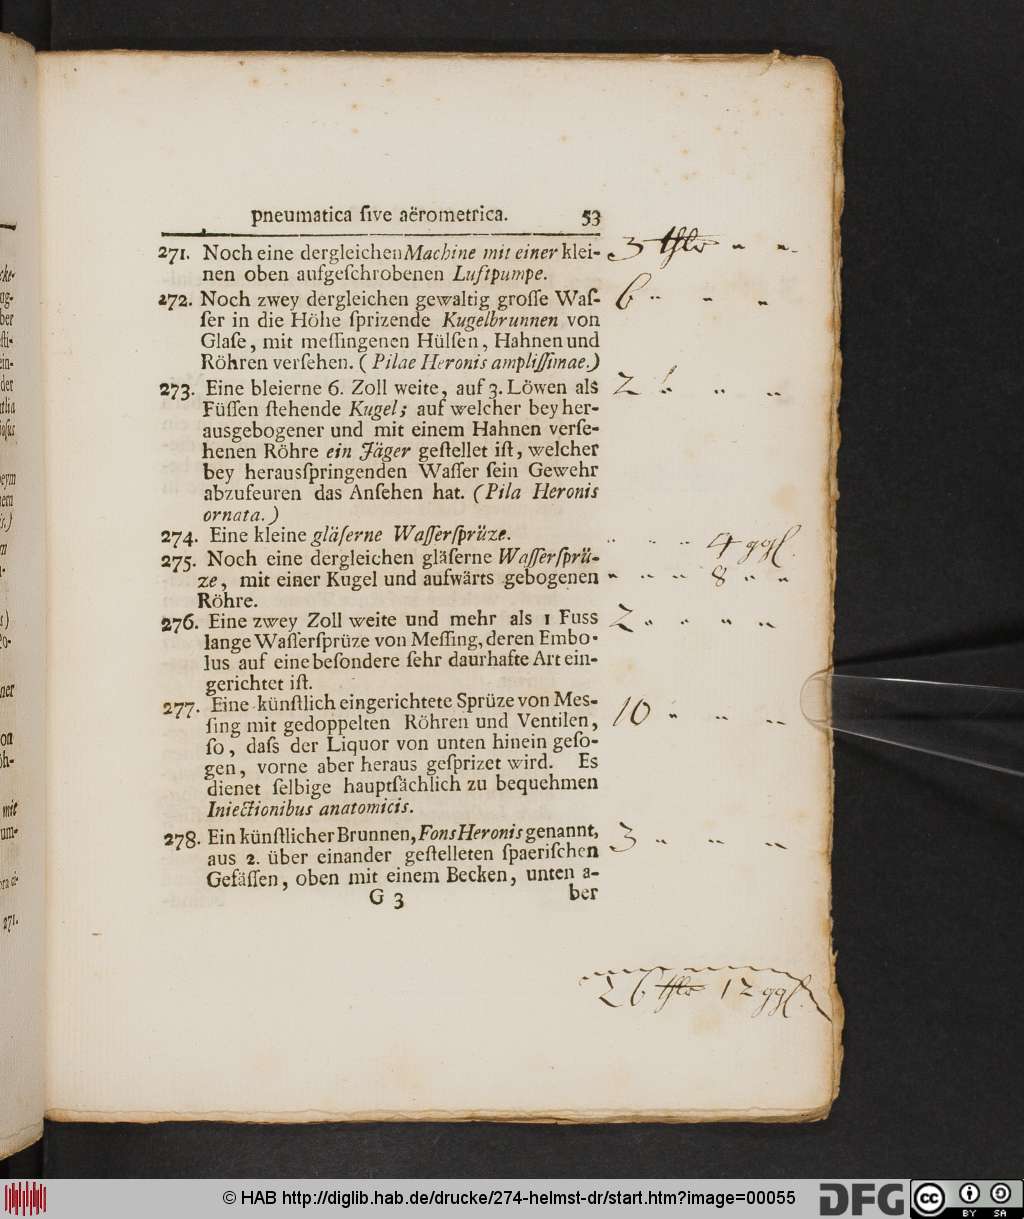 pneumatica ſive aërometrica. 53
271. Noch eine dergleichen Machine mit einer klei- 3 thlr „ „
nen oben aufgeſchrobenen Luftpumpe.
272. Noch zwey dergleichen gewaltig groſſe Waſ- 6 „ „ „
ſer in die Höhe ſprizende Kugelbrunnen von
Glaſe, mit meſſingenen Hülſen, Hahnen und
Röhren verſehen. (Pilae Heronis ampliſſimae.)
273. Eine bleierne 6. Zoll weite, auf 3. Löwen als 2 „ „
Füſſen ſtehende Kugel; auf welcher bey her-
ausgebogener und mit einem Hahnen verſe-
henen Röhre ein Jäger geſtellet iſt, welcher
bey herausſpringenden Waſſer ſein Gewehr
abzufeuren das Anſehen hat. (Pila Heronis
ornata.)
274. Eine kleine gläſerne Waſſerſprüze. „ „ „ 4 ggl.
275. Noch eine dergleichen gläſerne Waſſerſprü- „ „ „ 8 „ „
ze, mit einer Kugel und aufwärts gebogenen
Röhre.
276. Eine zwey Zoll weite und mehr als 1 Fuss 2 „ „ „ „
lange Waſſerſprüze von Meſſing, deren Embo-
lus auf eine beſondere ſehr daurhafte Art ein-
gerichtet iſt.
277. Eine künſtlich eingerichtete Sprüze von Meſ- 10 „ „ „
ſing mit gedoppelten Röhren und Ventilen,
ſo, daſs der Liquor von unten hinein geſo-
gen, vorne aber heraus geſprizet wird. Es
dienet ſelbige hauptſächlich zu bequehmen
Iniectionibus anatomicis.
278. Ein künſtlicher Brunnen, Fons Heronis genannt, 3 „ „ „
aus 2. über einander geſtelleten ſpaeriſchen
Gefäſſen, oben mit einem Becken, unten a-
G 3 ber
26 thlr 12 ggl.
271.
© HAB http://diglib.hab.de/drucke/274-helmst-dr/start.htm?image=00055
DFG
cc BY SA